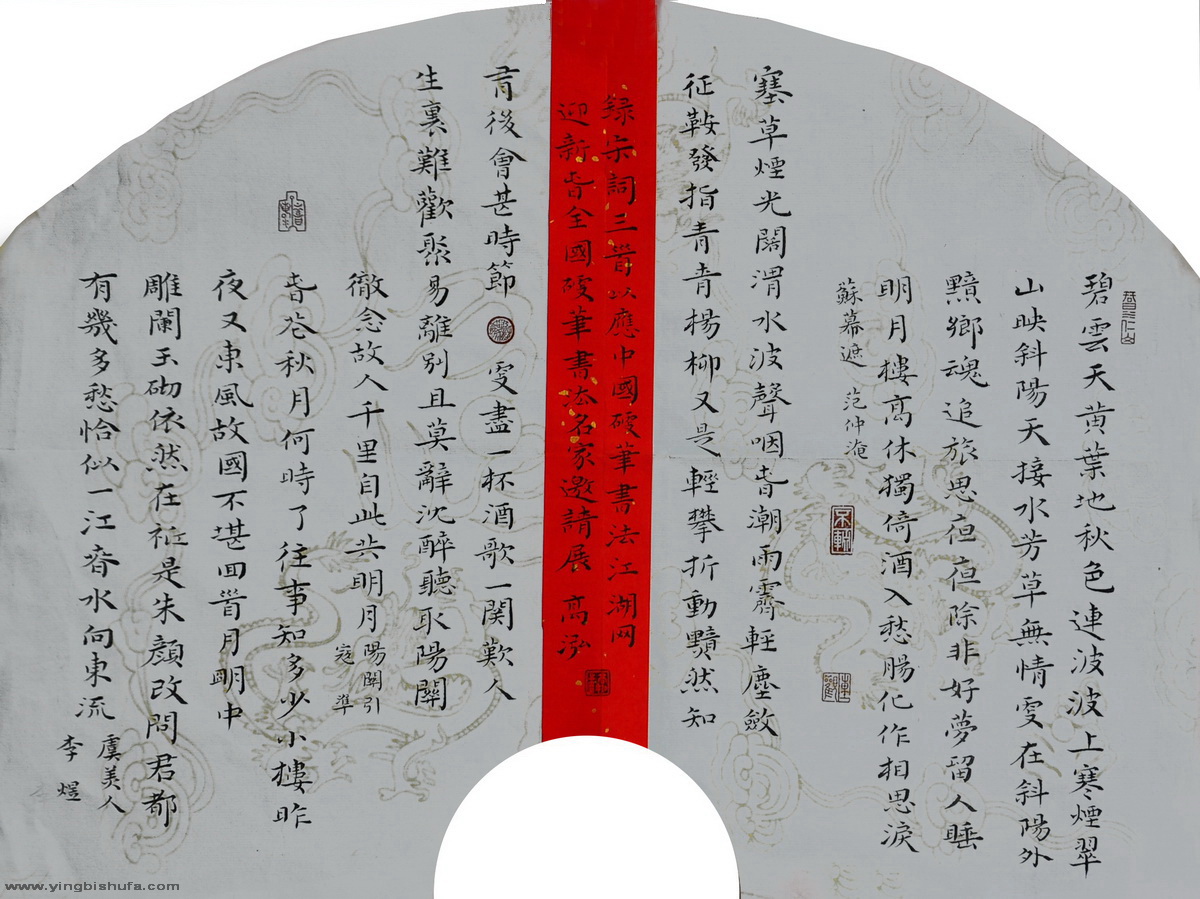 碧雲天黄葉地秋色連波波上寒煙翠
山映斜陽天接水芳草無情更在斜陽外
黯鄉魂追旅思夜夜除非好夢留人睡
明月樓高休獨倚酒入愁腸化作相思淚
蘇幕遮 范仲淹
塞草煙光闊渭水波聲咽春潮雨霽輕塵斂
征鞍發指青青楊柳又是輕攀折動黯然知
録宋詞三首以應中國硬筆書法江湖网
迎新春全國硬筆書法名家邀請展 高泓
有後會甚時節 更盡一杯酒歌一闋歎人
生裏難歡聚易離別且莫辭沈醉聽取陽關
徹念故人千里自此共明月 陽關引
寇準
春花秋月何時了往事知多少小樓昨
夜又東風故國不堪回首月明中
雕闌玉砌依然在祗是朱顏改問君都
有幾多愁恰似一江春水向東流
虞美人
李煜
www.yingbishufa.com